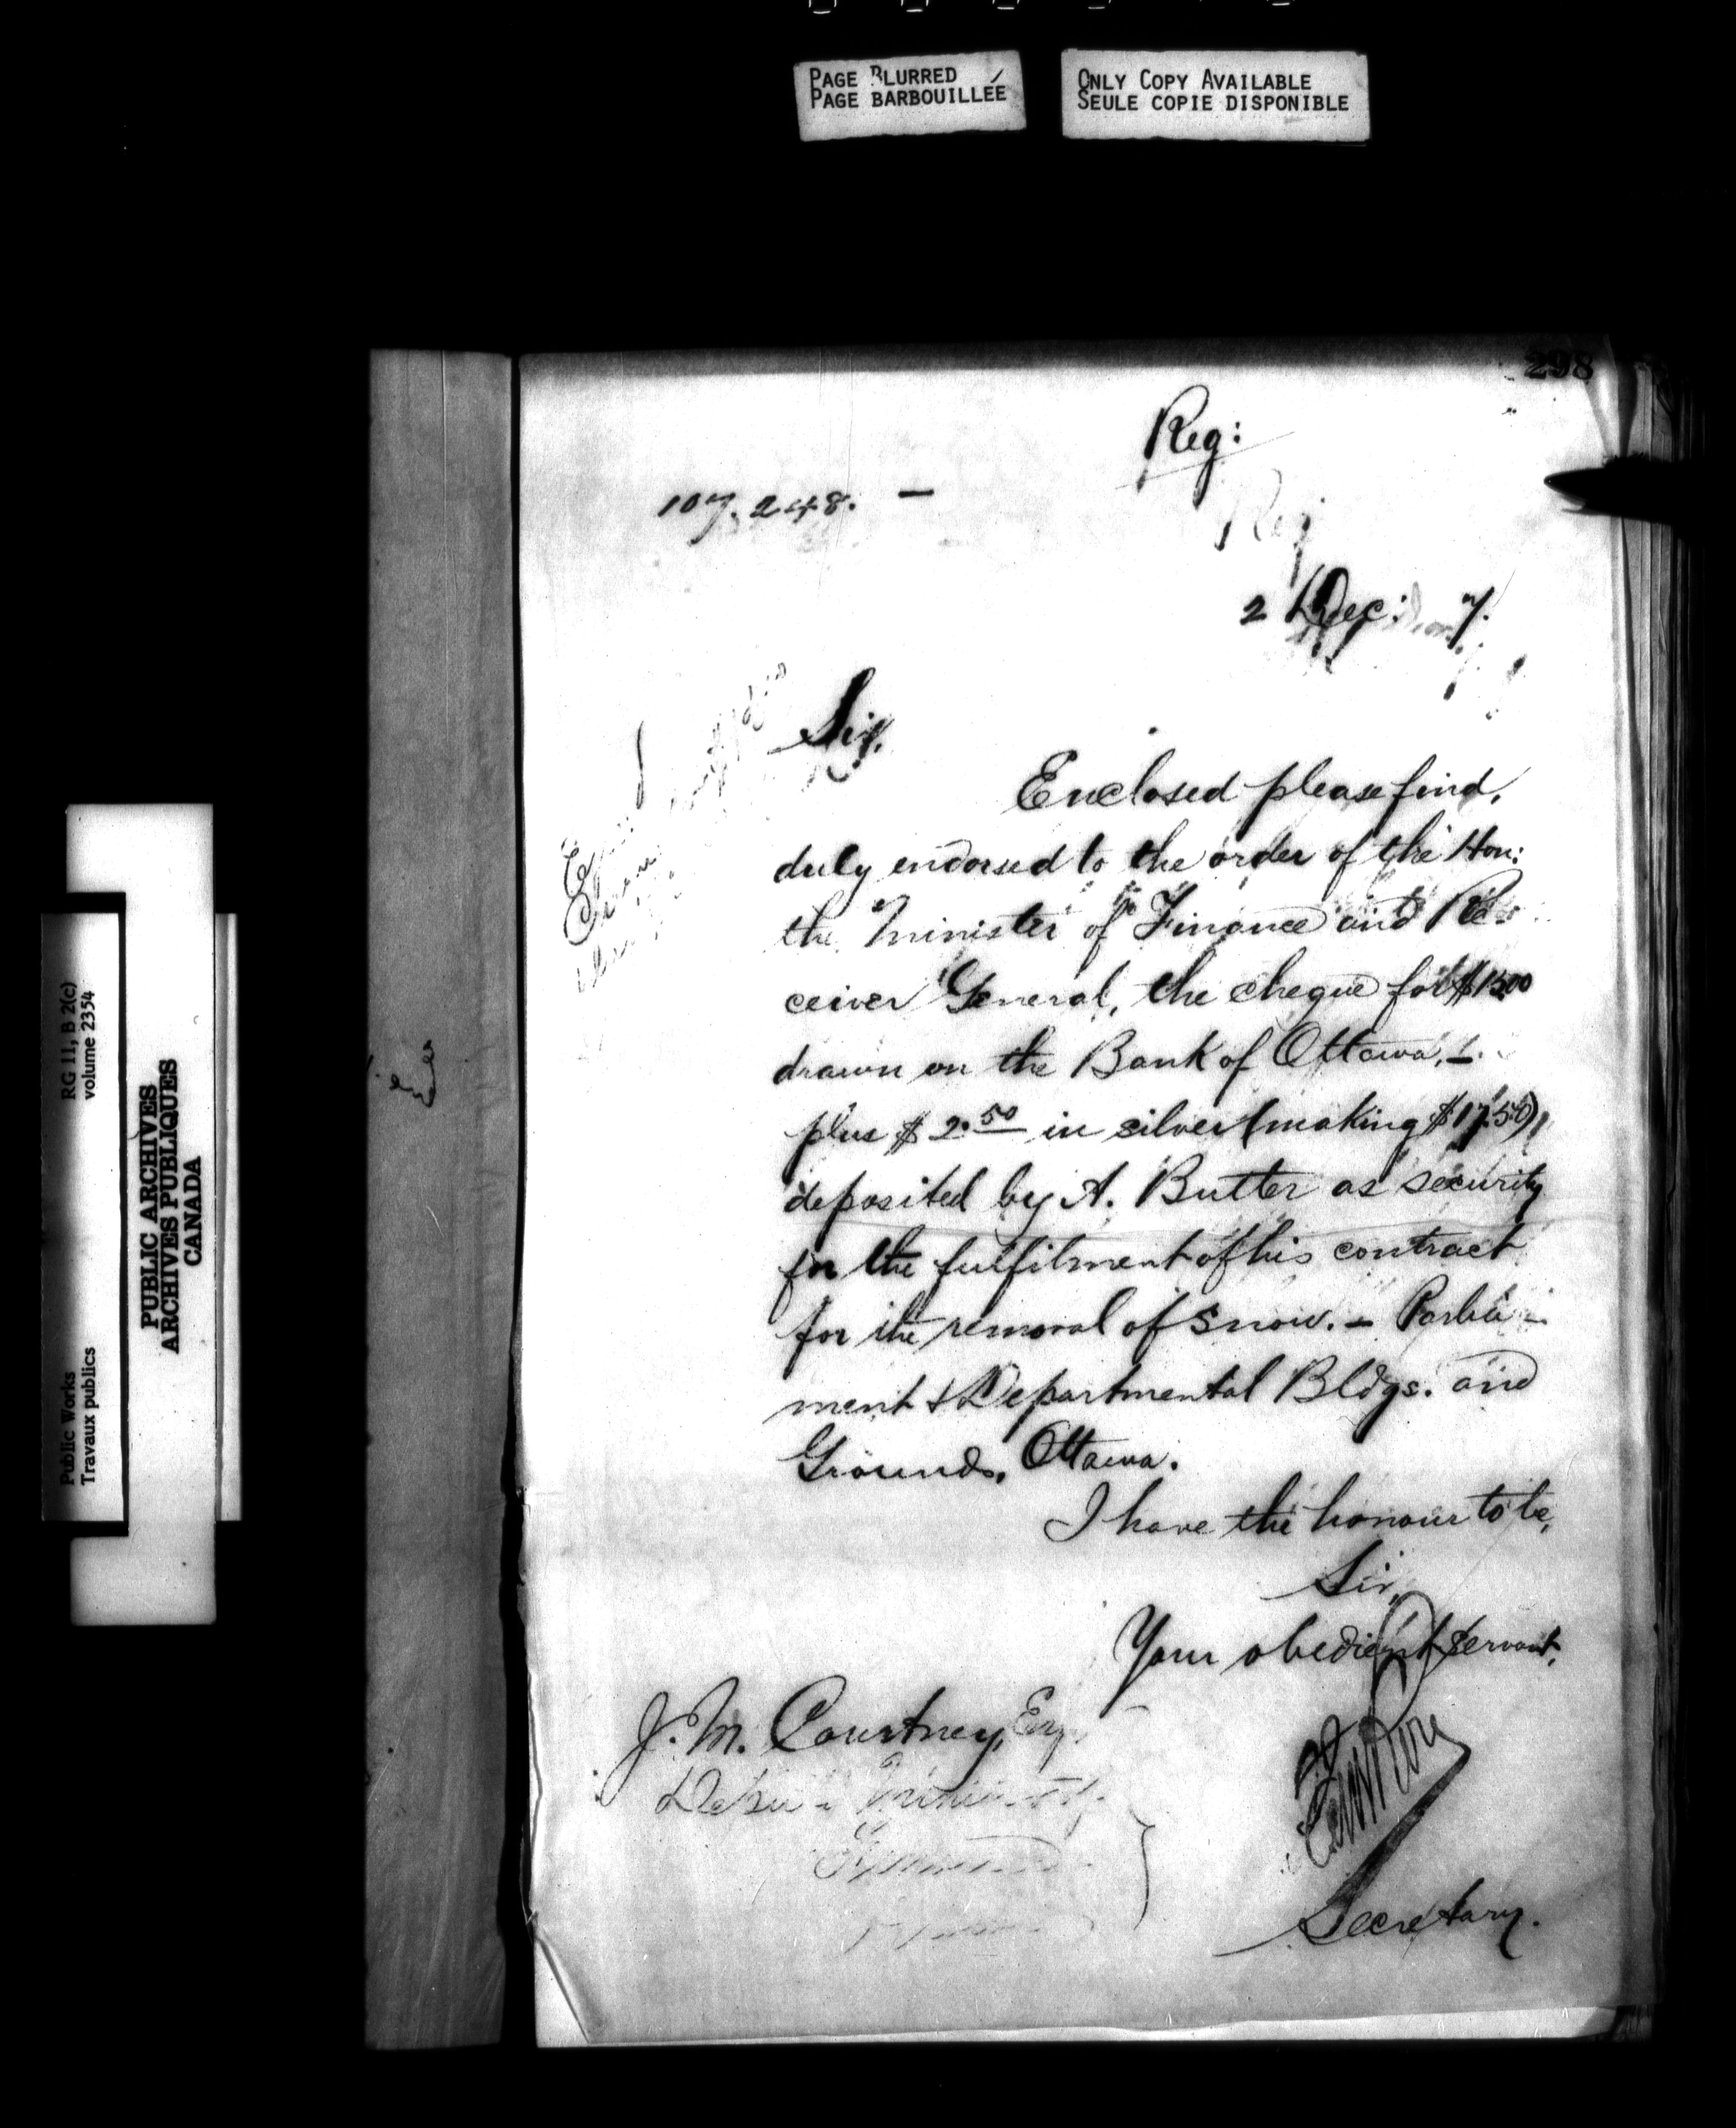 PAGE BLURRED
PAGE BARBOUILLÉE
ONLY COPY AVAILABLE
SEULE COPIE DISPONIBLE
298
Reg:
107.248. —
Reg
2 Dec: 7.
Sir,
Enclosed please find,
duly endorsed to the order of the Hon:
the Minister of Finance and Re-
ceiver General, the cheque for $1500
drawn on the Bank of Ottawa, —
plus $2.50 in silver (making $17.50),
deposited by A. Butter as security
for the fulfilment of his contract
for the removal of snow. — Parlia-
ment & Departmental Bldgs. and
Grounds, Ottawa.
I have the honour to be,
Sir,
Your obedient servant,
J. M. Courtney, Esq.
Secretary.
Public Works
Travaux publics
RG 11, B 2(c)
volume 2354
PUBLIC ARCHIVES
ARCHIVES PUBLIQUES
CANADA